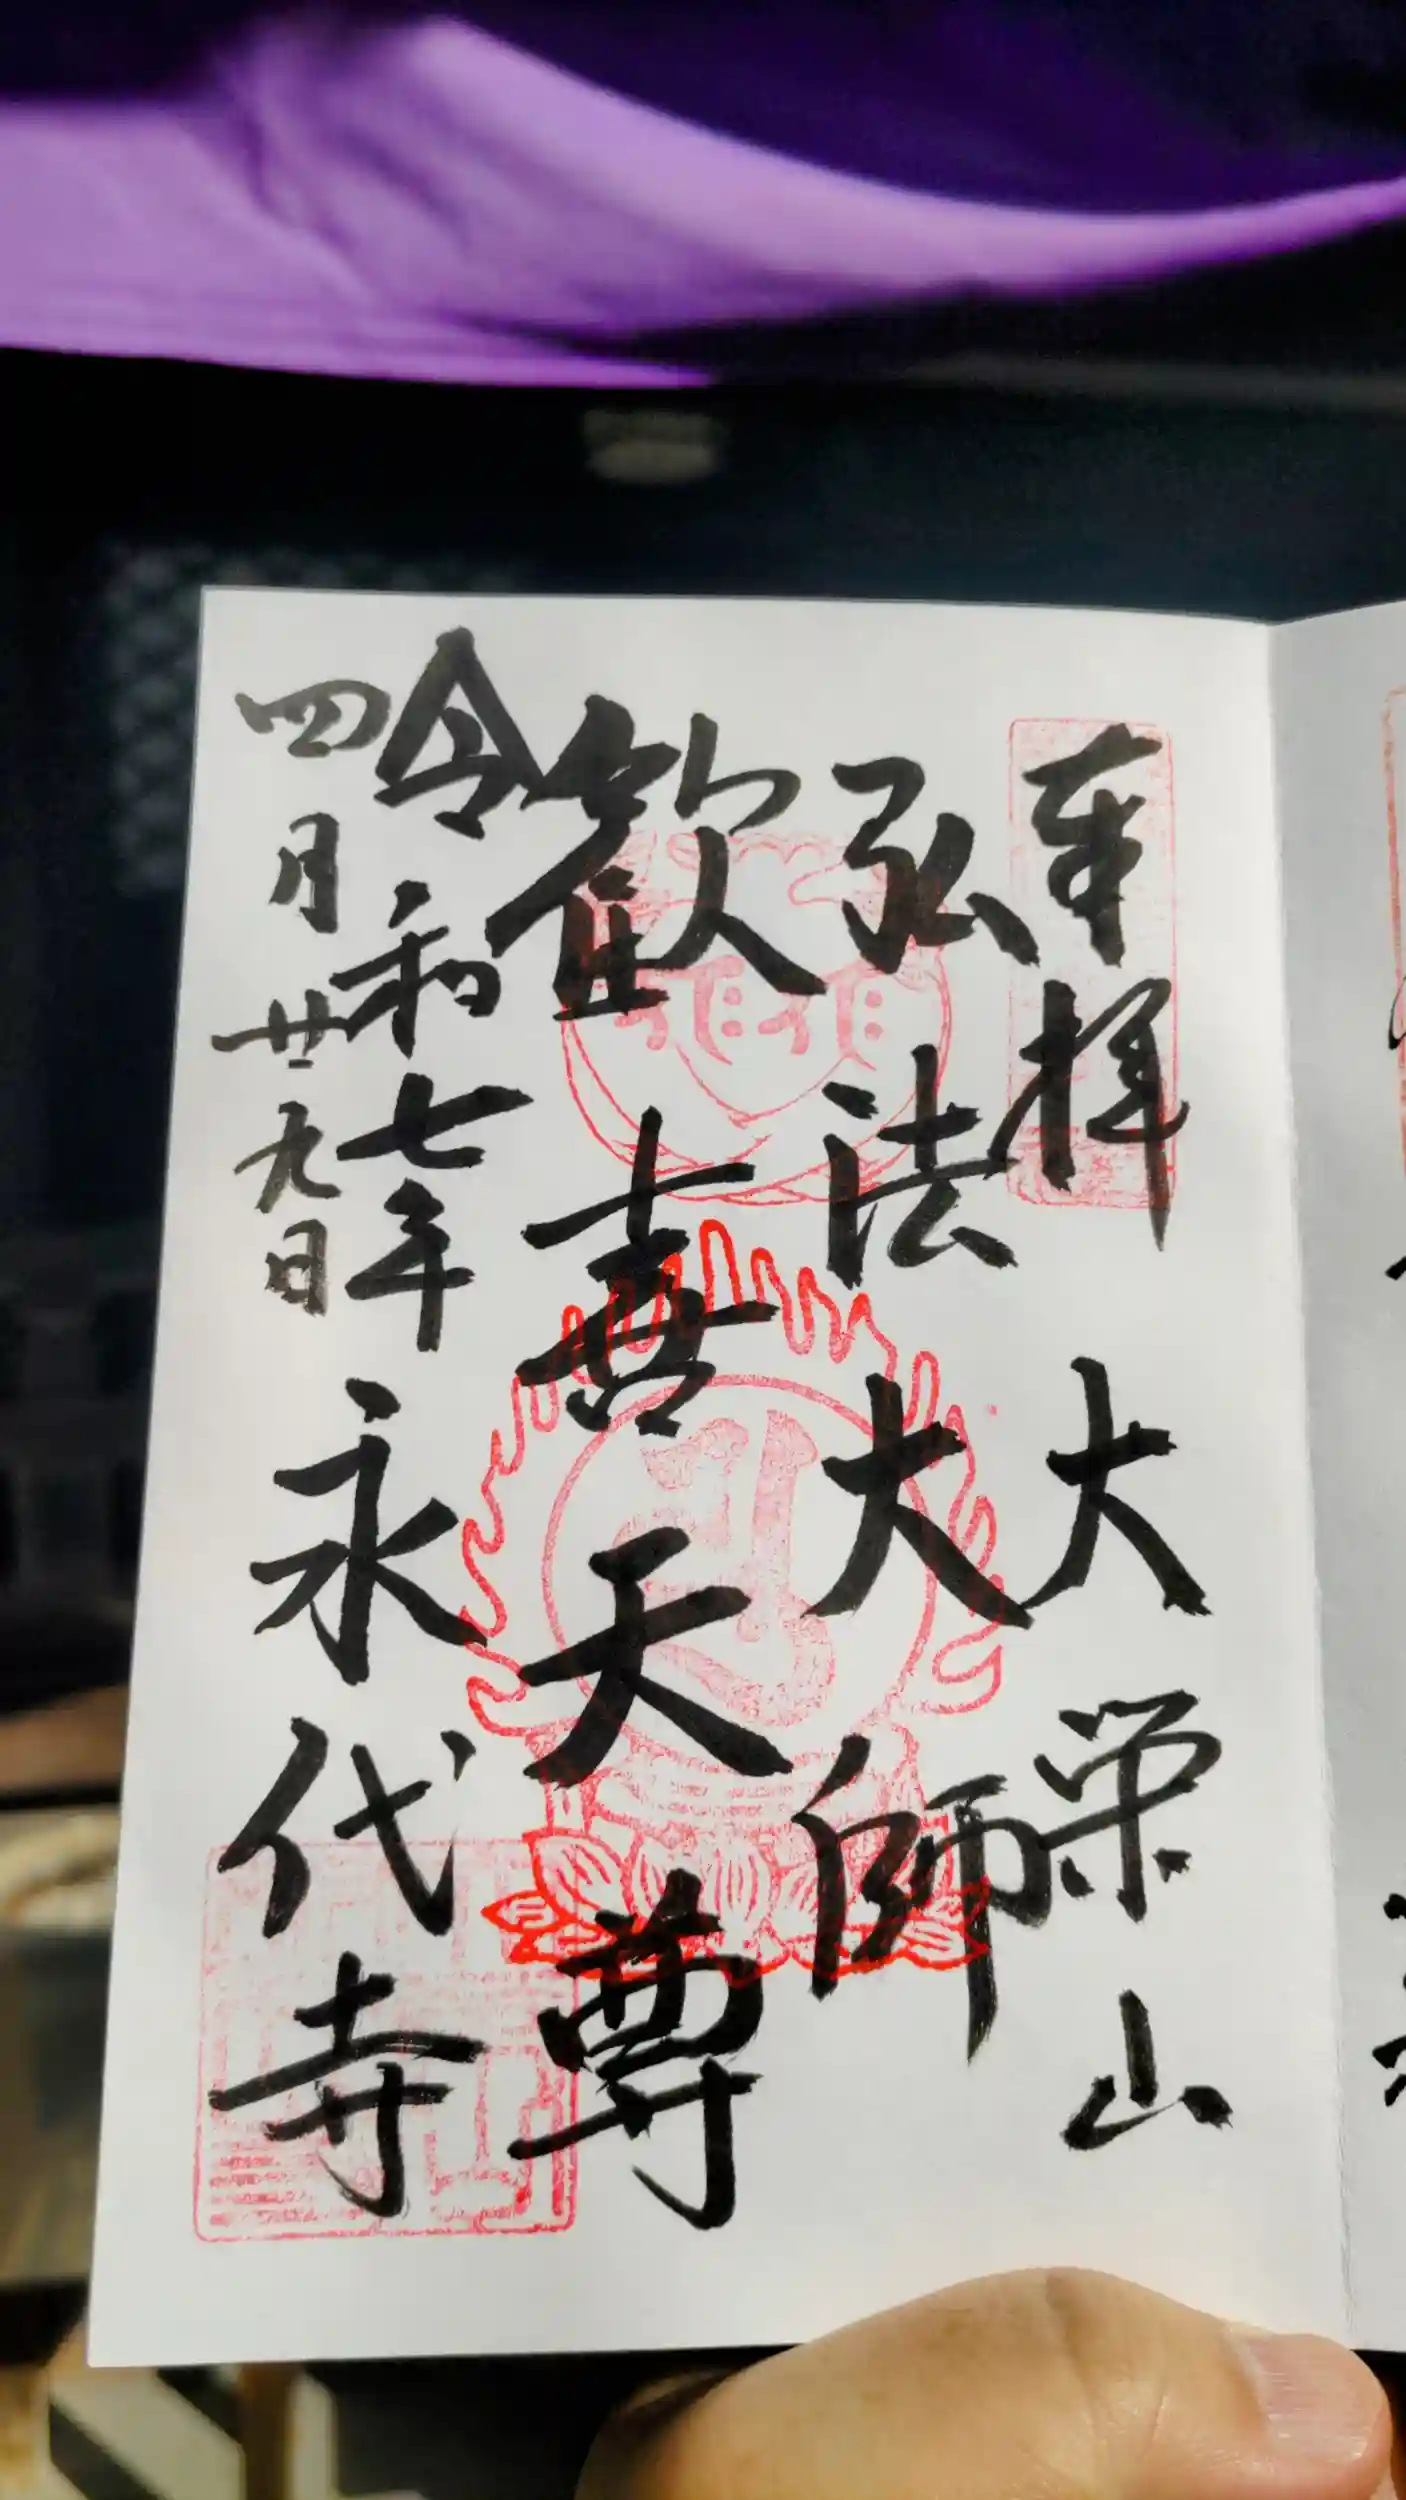 奉拝 大栄山
弘法大師
歓喜天尊
令和七年
四月廿九日
永代寺